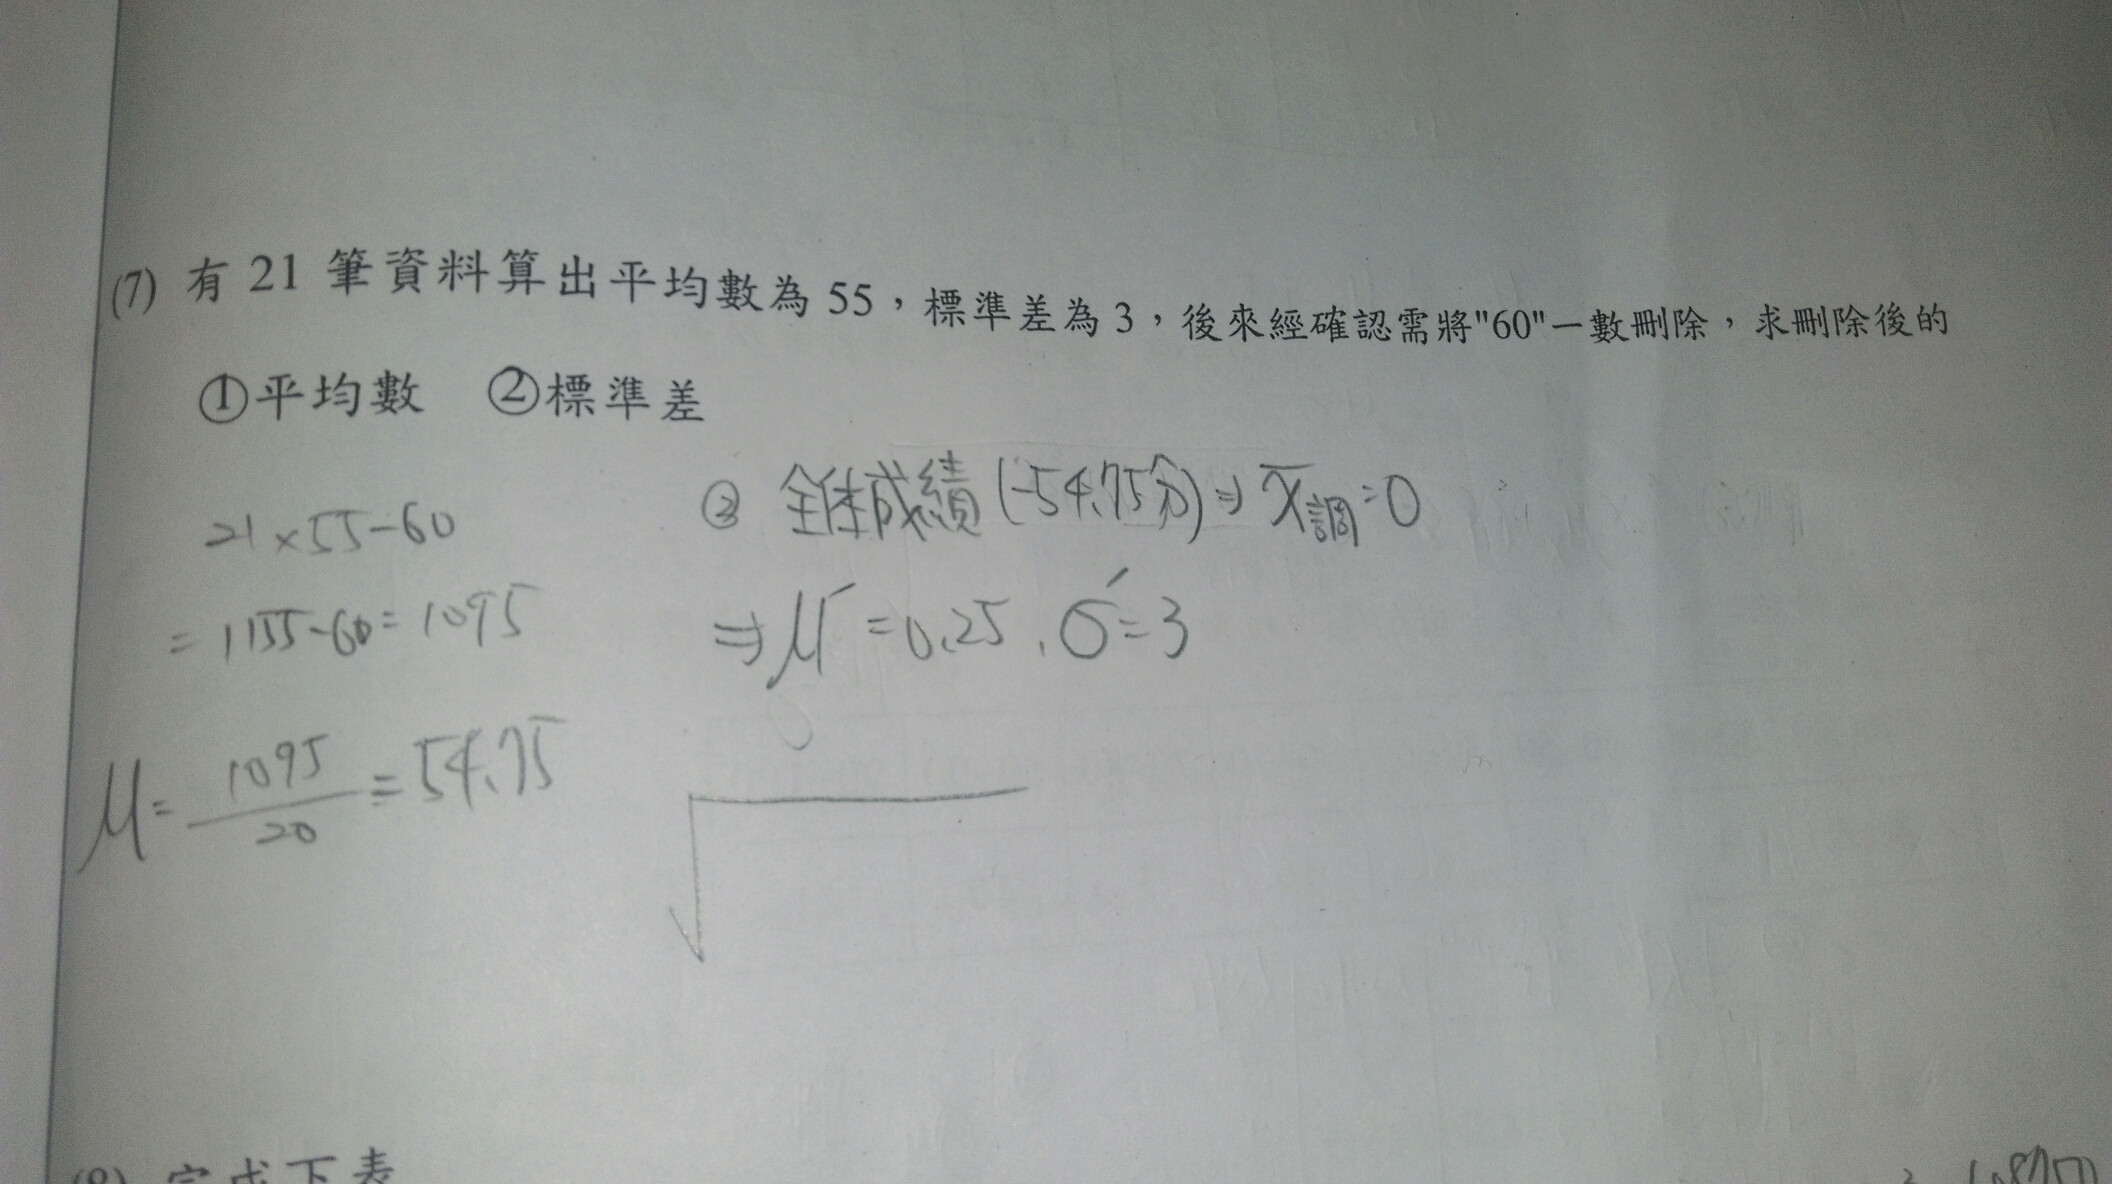 (7) 有 21 筆資料算出平均數為 55，標準差為 3，後來經確認需將"60"一數刪除，求刪除後的
①平均數 ②標準差
21×55-60
=1155-60=1095
μ=1095/20=54.75
② 全体成績(-54.75分)⇒x̄調=0
⇒μ'=0.25、σ'=3
√
(8) 完成下表